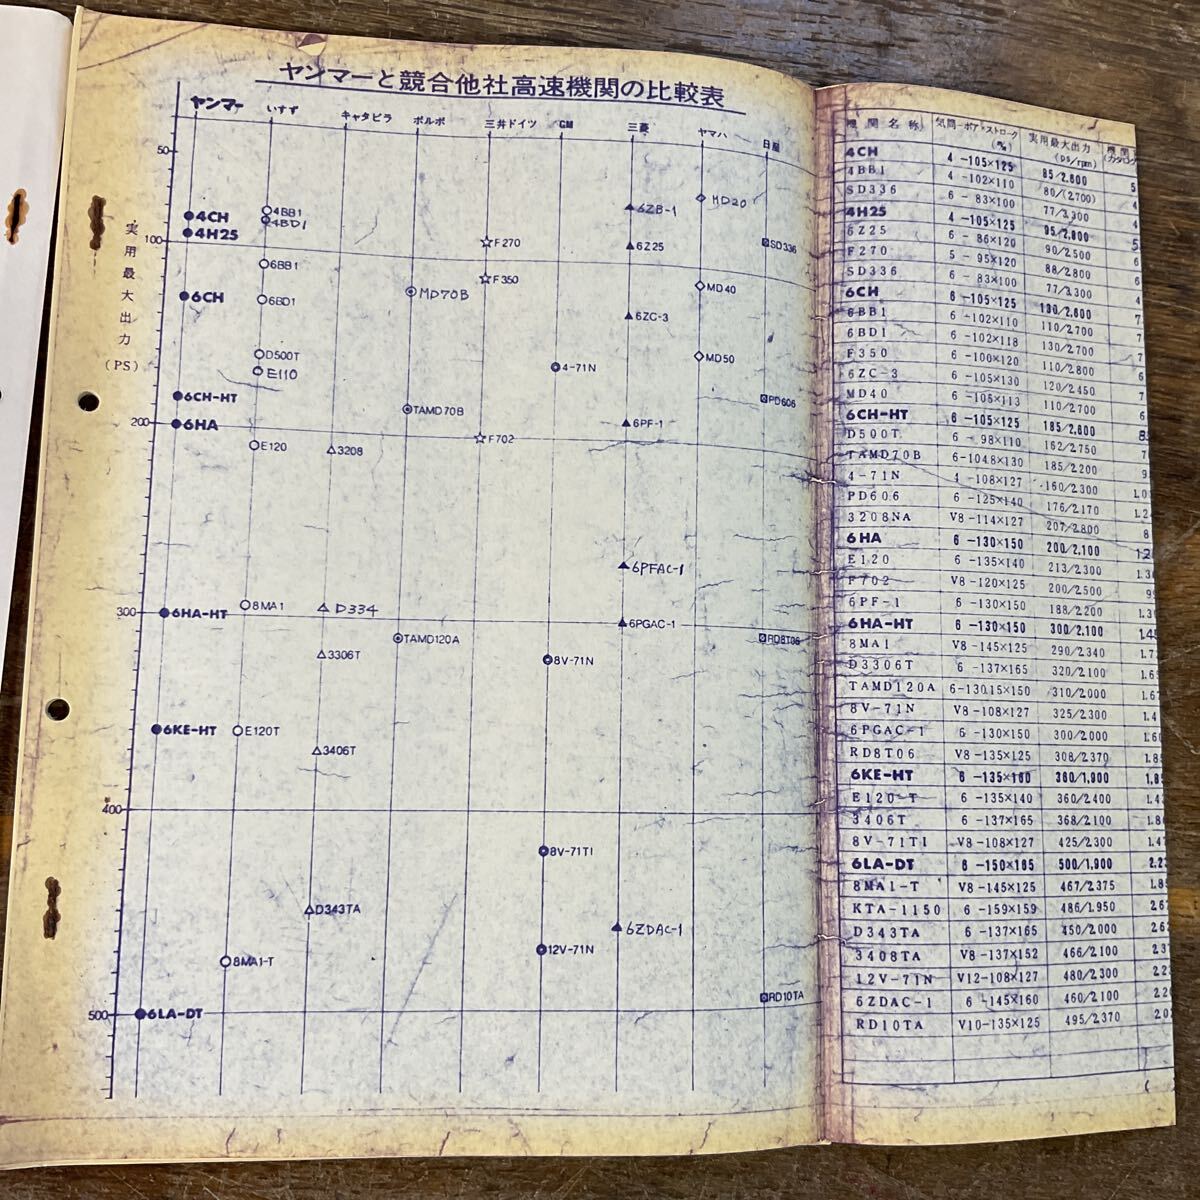 ヤンマーと競合他社高速機関の比較表
ヤンマー いすゞ キャタピラ ボルボ 三井ドイツ GM 三菱 ヤマハ 日産
実用最大出力(PS)
50
100
200
300
400
500
4CH
4H25
6CH
6CH-HT
6HA
6HA-HT
6KE-HT
6LA-DT
4BB1
4BD1
6BB1
6BD1
D500T
E110
E120
8MA1
E120T
8MA1-T
3208
D334
3306T
3406T
D343TA
MD70B
TAMD70B
TAMD120A
F270
F350
F702
4-71N
8V-71N
8V-71TI
12V-71N
6ZB-1
6Z25
6ZC-3
6PF-1
6PFAC-1
6PGAC-1
6ZDAC-1
MD20
MD40
MD50
SD336
PD606
RD8T06
RD10TA
機関名称 気筒-ボア×ストローク(㎜) 実用最大出力(PS/rpm) 機関(カタログ
4CH 4-105×125 85/2,800 5
4BB1 4-102×110 80/(2,700) 4
SD336 6-83×100 77/3,300 4
4H25 4-105×125 95/2,800 5
6Z25 6-86×120 90/2,500 6
F270 5-95×120 88/2,800 6
SD336 6-83×100 77/3,300 4
6CH 6-105×125 130/2,600 7
6BB1 6-102×110 110/2,700
6BD1 6-102×118 130/2,700 7
F350 6-100×120 110/2,800 6
6ZC-3 6-105×130 120/2,450 7
MD40 6-105×113 110/2,700 6
6CH-HT 6-105×125 185/2,600 8
D500T 6-98×110 162/2,750 7
TAMD70B 6-104.8×130 185/2,200 9
4-71N 4-108×127 160/2,300 1,0
PD606 6-125×140 176/2,170 1,2
3208NA V8-114×127 207/2,800 8
6HA 6-130×150 200/2,100 1,2
E120 6-135×140 213/2,300 1,3
F702 V8-120×125 200/2,500 9
6PF-1 6-130×150 188/2,200 1,3
6HA-HT 6-130×150 300/2,100 1,4
8MA1 V8-145×125 290/2,340 1,7
D3306T 6-137×165 320/2,100 1,6
TAMD120A 6-130.15×150 310/2,000 1,6
8V-71N V8-108×127 325/2,300 1,4
6PGAC-1 6-130×150 300/2,000 1,6
RD8T06 V8-135×125 308/2,370 1,8
6KE-HT 6-135×160 360/1,900 1,8
E120-T 6-135×140 360/2,400 1,4
3406T 6-137×165 368/2,100 1,8
8V-71TI V8-108×127 425/2,300 1,4
6LA-DT 6-150×165 500/1,900 2,2
8MA1-T V8-145×125 467/2,375 1,8
KTA-1150 6-159×159 486/1,950 2,6
D343TA 6-137×165 450/2,000 2,6
3408TA V8-137×152 466/2,100 2,3
12V-71N V12-108×127 480/2,300 2,2
6ZDAC-1 6-145×160 460/2,100 2,2
RD10TA V10-135×125 495/2,370 2,0